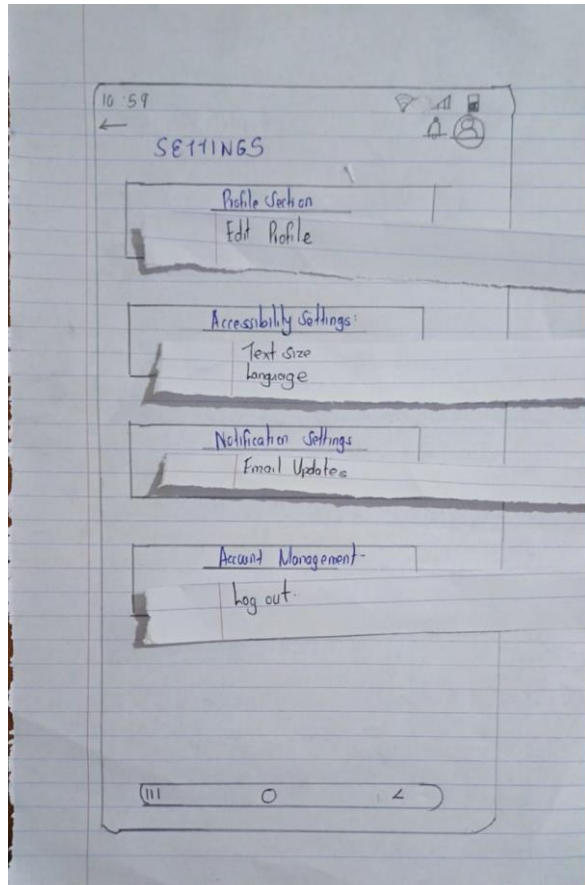 10:59
SETTINGS
Profile Section
Edit Profile
Accessibility Settings:
Text Size
Language
Notification Settings
Email Updates
Account Management
Log out.